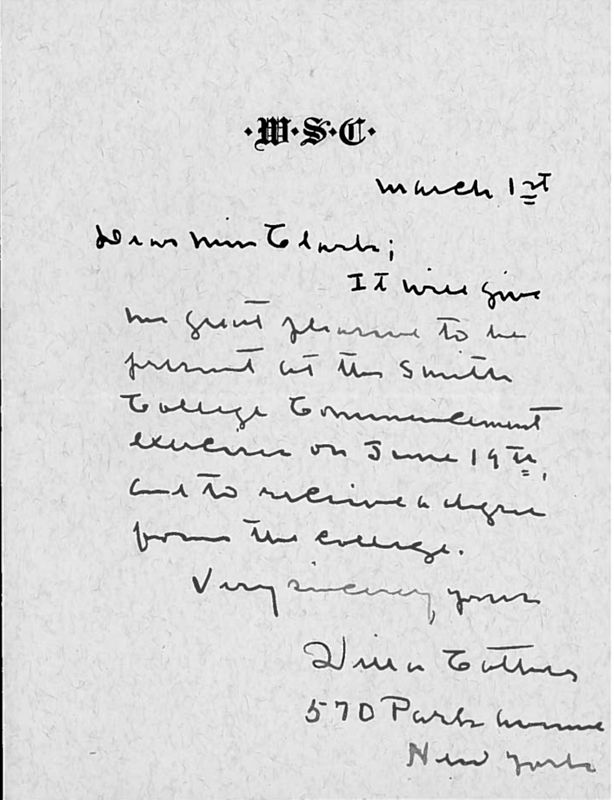 ·W·S·C·
March 1st
Dear Miss Clark;
It will give
me great pleasure to be
present at the Smith
College Commencement
exercises on June 19th,
and to receive a degree
from the college.
Very sincerely yours
Willa Cather
570 Park Avenue
New York